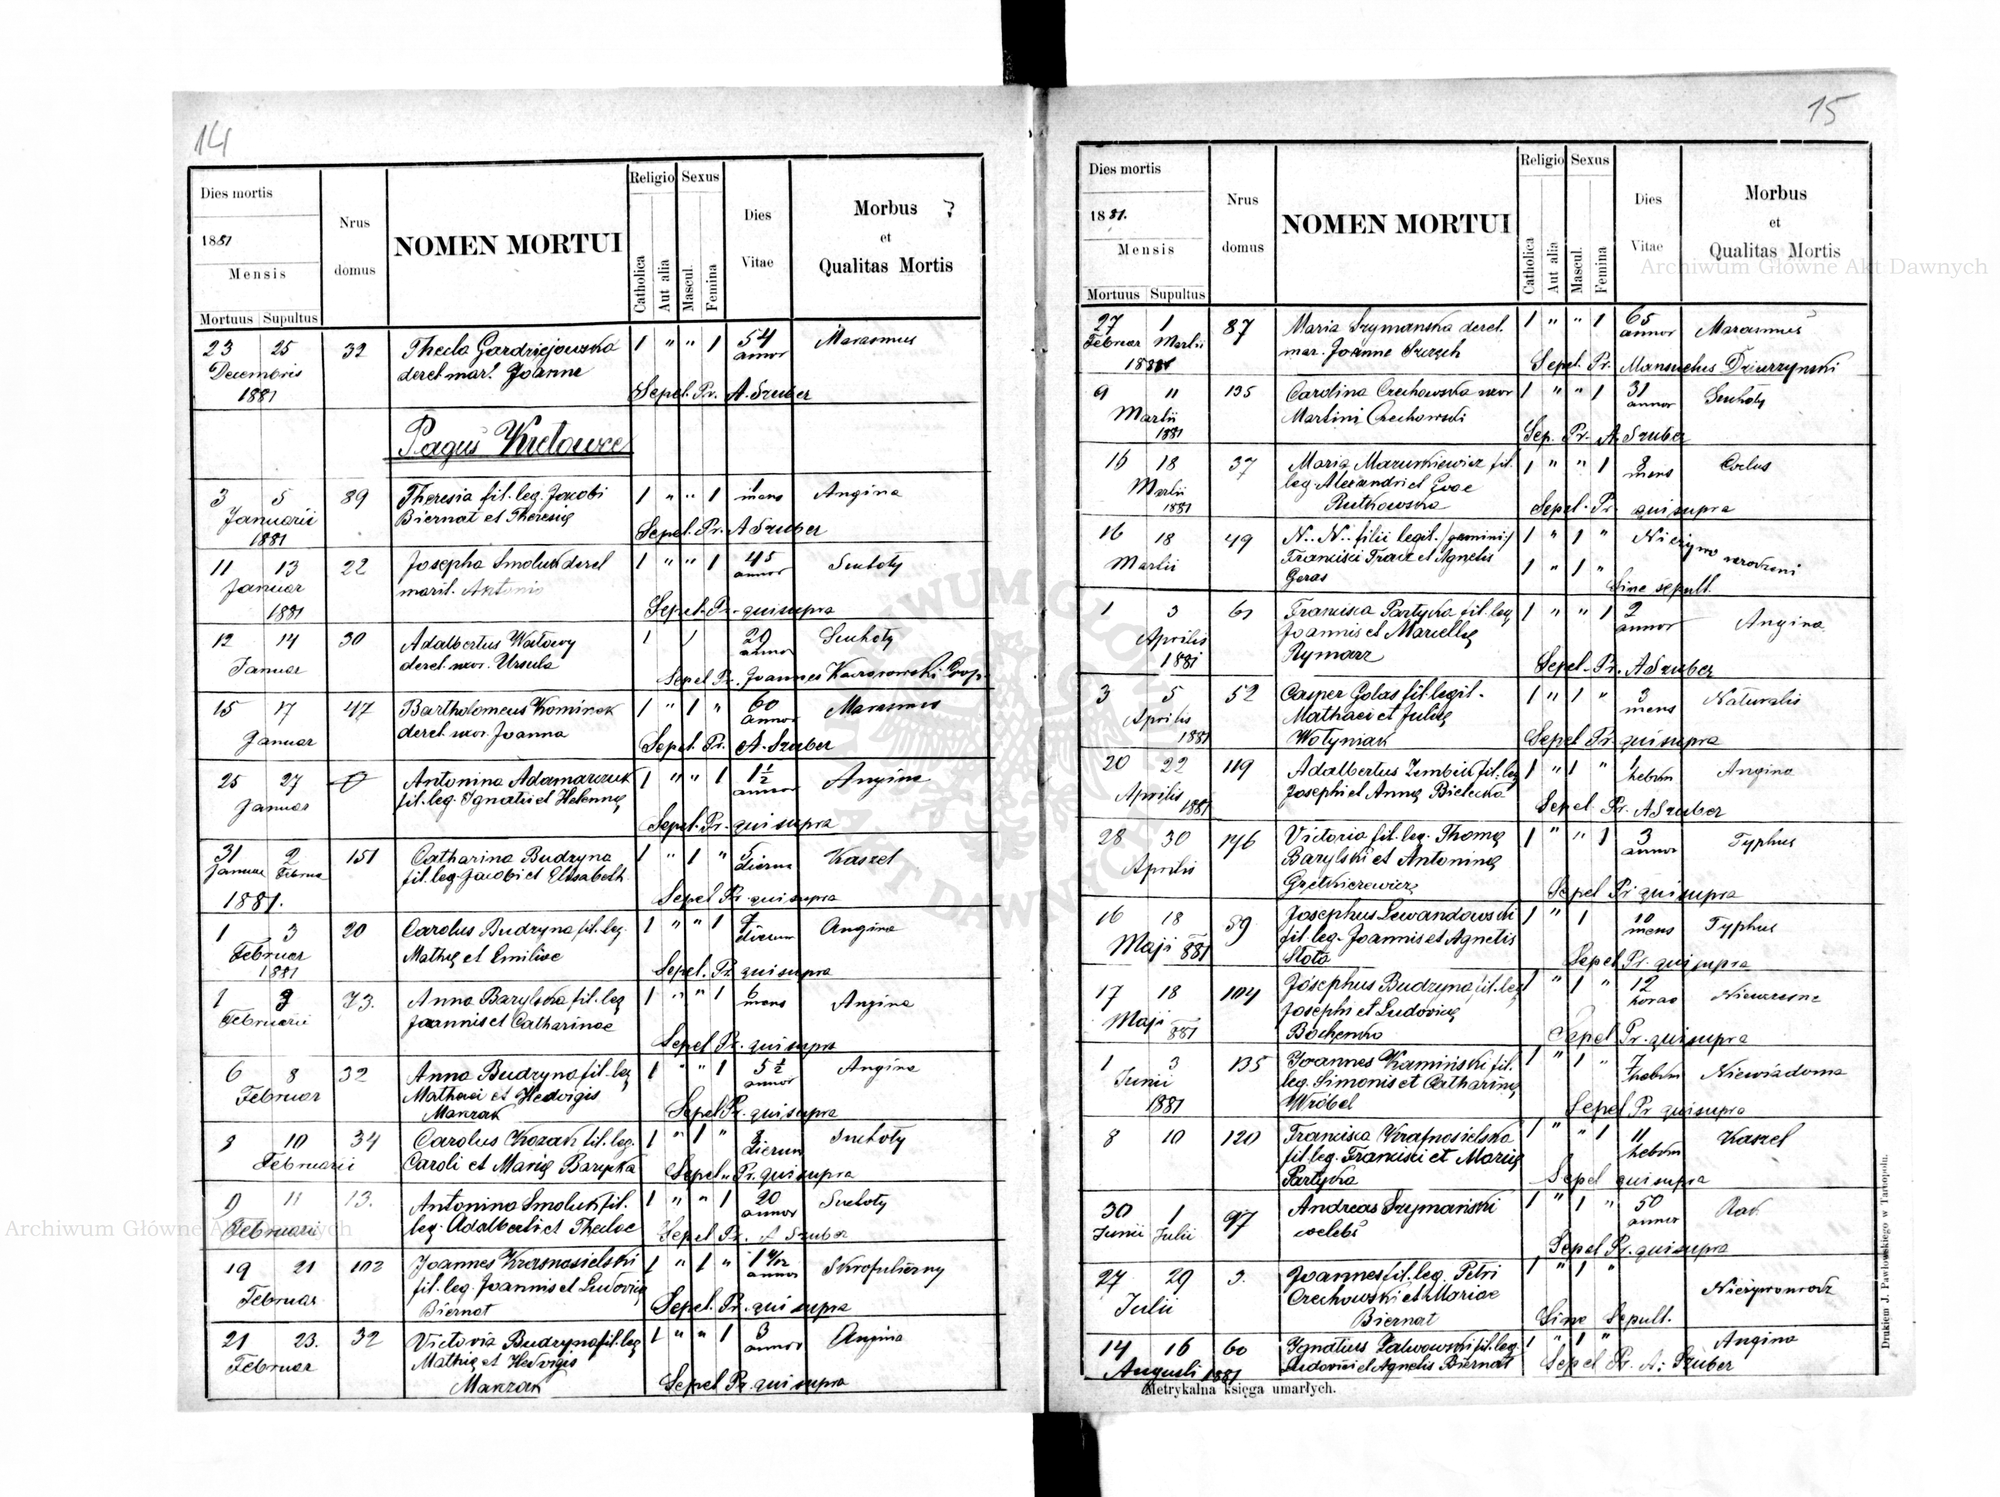 14
Dies mortis
1881
Mensis
Mortuus Supultus
Nrus
domus
NOMEN MORTUI
Religio Sexus
Catholica
Aut alia
Mascul.
Femina
Dies
Vitae
Morbus ?
et
Qualitas Mortis
23 25 32 Thecla Gardziejowska 1 " " 1 54 Marasmus
Decembris derel. mar. Joanne annor
1881 Sepel. Pr. A. Szuber
Pagus Kretowce
3 5 89 Theresia fil. leg. Jacobi 1 " " 1 1 Angina
Januarii Biernat et Theresię mens
1881 Sepel. Pr. A Szuber
11 13 22 Josepha Smoluk derel 1 " " 1 45 Suchoty
Januar marit. Antonio annor
1881 Sepel. Pr. qui supra
12 14 30 Adalbertus Watowy 1 1 20 Suchoty
Januar derel. uxor. Ursula annor
Sepel Pr. Joannes Karasowski Coop.
15 17 47 Bartholomeus Kominek 1 " 1 " 60 Marasmus
Januar derel. uxor. Joanna annor
Sepel. Pr. A. Szuber
25 27 Antonina Adamarczuk 1 " " 1 1 1/2 Angina
Januar fil. leg. Ignatii et Helennę annor
Sepel. Pr. qui supra
31 2 151 Catharina Budzyna 1 " 1 " 5 Kaszel
Januar Februar fil. leg. Jacobi et Elisabeth dierum
1881. Sepel Pr. qui supra
1 3 20 Carolus Budzyna fil. leg. 1 " " 1 7 Angina
Februar Mathię et Emiliae dierum
1881 Sepel. Pr. qui supra
1 3 73. Anna Barylska fil. leg 1 " " 1 6 Angina
Februarii Joannis et Catharinae mens
Sepel Pr. qui supra
6 8 32 Anna Budzyna fil. leg 1 " " 1 5 1/2 Angina
Februar Mathaei et Hedvigis annor
Manzak Sepel Pr. qui supra
8 10 34 Carolus Kozak fil. leg. 1 " 1 " 8 Suchoty
Februarii Caroli et Marię Barycka dierum
Sepel. Pr. qui supra
9 11 13. Antonina Smoluk fil. 1 " " 1 20 Suchoty
Februarii leg. Adalberti et Theclae annor
Sepel Pr. A Szuber
19 21 102 Joannes Krasnosielski 1 " 1 " Skrofuliczny
Februar fil. leg. Joannis et Ludovicę annor
Biernat Sepel. Pr. qui supra
21 23. 32 Victoria Budzyna fil. leg 1 " " 1 3 Angina
Februar Mathię et Hedvigis annor
Manzak Sepel Pr. qui supra
15
Dies mortis
1881.
Mensis
Mortuus Supultus
Nrus
domus
NOMEN MORTUI
Religio Sexus
Catholica
Aut alia
Mascul.
Femina
Dies
Vitae
Morbus
et
Qualitas Mortis
27 1 87 Maria Szymanska derel. 1 " " 1 65 Marasmus
Februar Martii mar. Joanne annor
1881 Sepel. Pr. Mansuetus Dziurzynski
9 11 135 Carolina Czechowska uxor 1 " " 1 31 Suchoty
Martii Martini Czechowski annor
1881 Sep. Pr. A. Szuber
16 18 37 Maria Mazurkiewicz fil. 1 " " 1 8
Martii leg. Alexandri et Evae mens
1881 Rutkowska Sepel. Pr. qui supra
16 18 49 N.. N.. filii legit. /gemini/ 1 " 1 " Nieżywo narodzeni
Martii Francisci Tracz et Agnetis 1 " 1 "
Geras Sine sepult.
1 3 61 Francisca Partycka fil. leg 1 " " 1 2 Angina
Aprilis Joannis et Marcellę annor
1881 Rymarz Sepel. Pr. A Szuber
3 5 52 Casper Golas fil. legit. 1 " 1 " 3 Naturalis
Aprilis Mathaei et Julię mens
1881 Wołyniak Sepel Pr. qui supra
20 22 119 Adalbertus Zembik fil. leg 1 " 1 " 1 Angina
Aprilis 1881 Josephi et Annę Bielecka hebdm
Sepel Pr. A Szuber
28 30 146 Victoria fil. leg. Thomę 1 " " 1 3 Typhus
Aprilis Barylski et Antoninę annor
Sepel Pr qui supra
16 18 59 Josephus Lewandowski 1 " 1 10 Typhus
Maji 881 fil. leg. Joannis et Agnetis mens
Słota Sepel Pr. qui supra
17 18 104 Josephus Budzyna fil. leg 1 " 1 " 12 Niewczesne
Maji 881 Josephi et Ludovicę horae
Bochenko Sepel Pr. qui supra
1 3 135 Joannes Kamiński fil. 1 " 1 " 7 Niewiadoma
Junii leg. Simonis et Catharinę hebdm
1881 Wróbel Sepel Pr qui supra
8 10 120 Francisca Krasnosielska 1 " " 1 11 Kaszel
fil. leg. Francisci et Marię hebdm
Partycka Sepel qui supra
30 1 97 Andreas Szymański 1 " 1 " 50 Rak
Junii Julii celebs annor
Sepel Pr. qui supra
27 29 3. Joannes fil. leg. Petri 1 " 1 " Nieżywonrodz
Julii Czechowski et Mariae
Biernat Sine Sepult.
14 16 60 Ignatius Zalwowski fil. leg. 1 " 1 " Angina
Augusti 1881 Ludovici et Agnetis Biernat Sepel Pr. A: Szuber
Metrykalna księga umarłych.
Drukiem J. Pawłowskiego w Tarnopolu.
Archiwum Główne Akt Dawnych
Archiwum Główne Akt Dawnych
ARCHIWUM GŁÓWNE AKT DAWNYCH